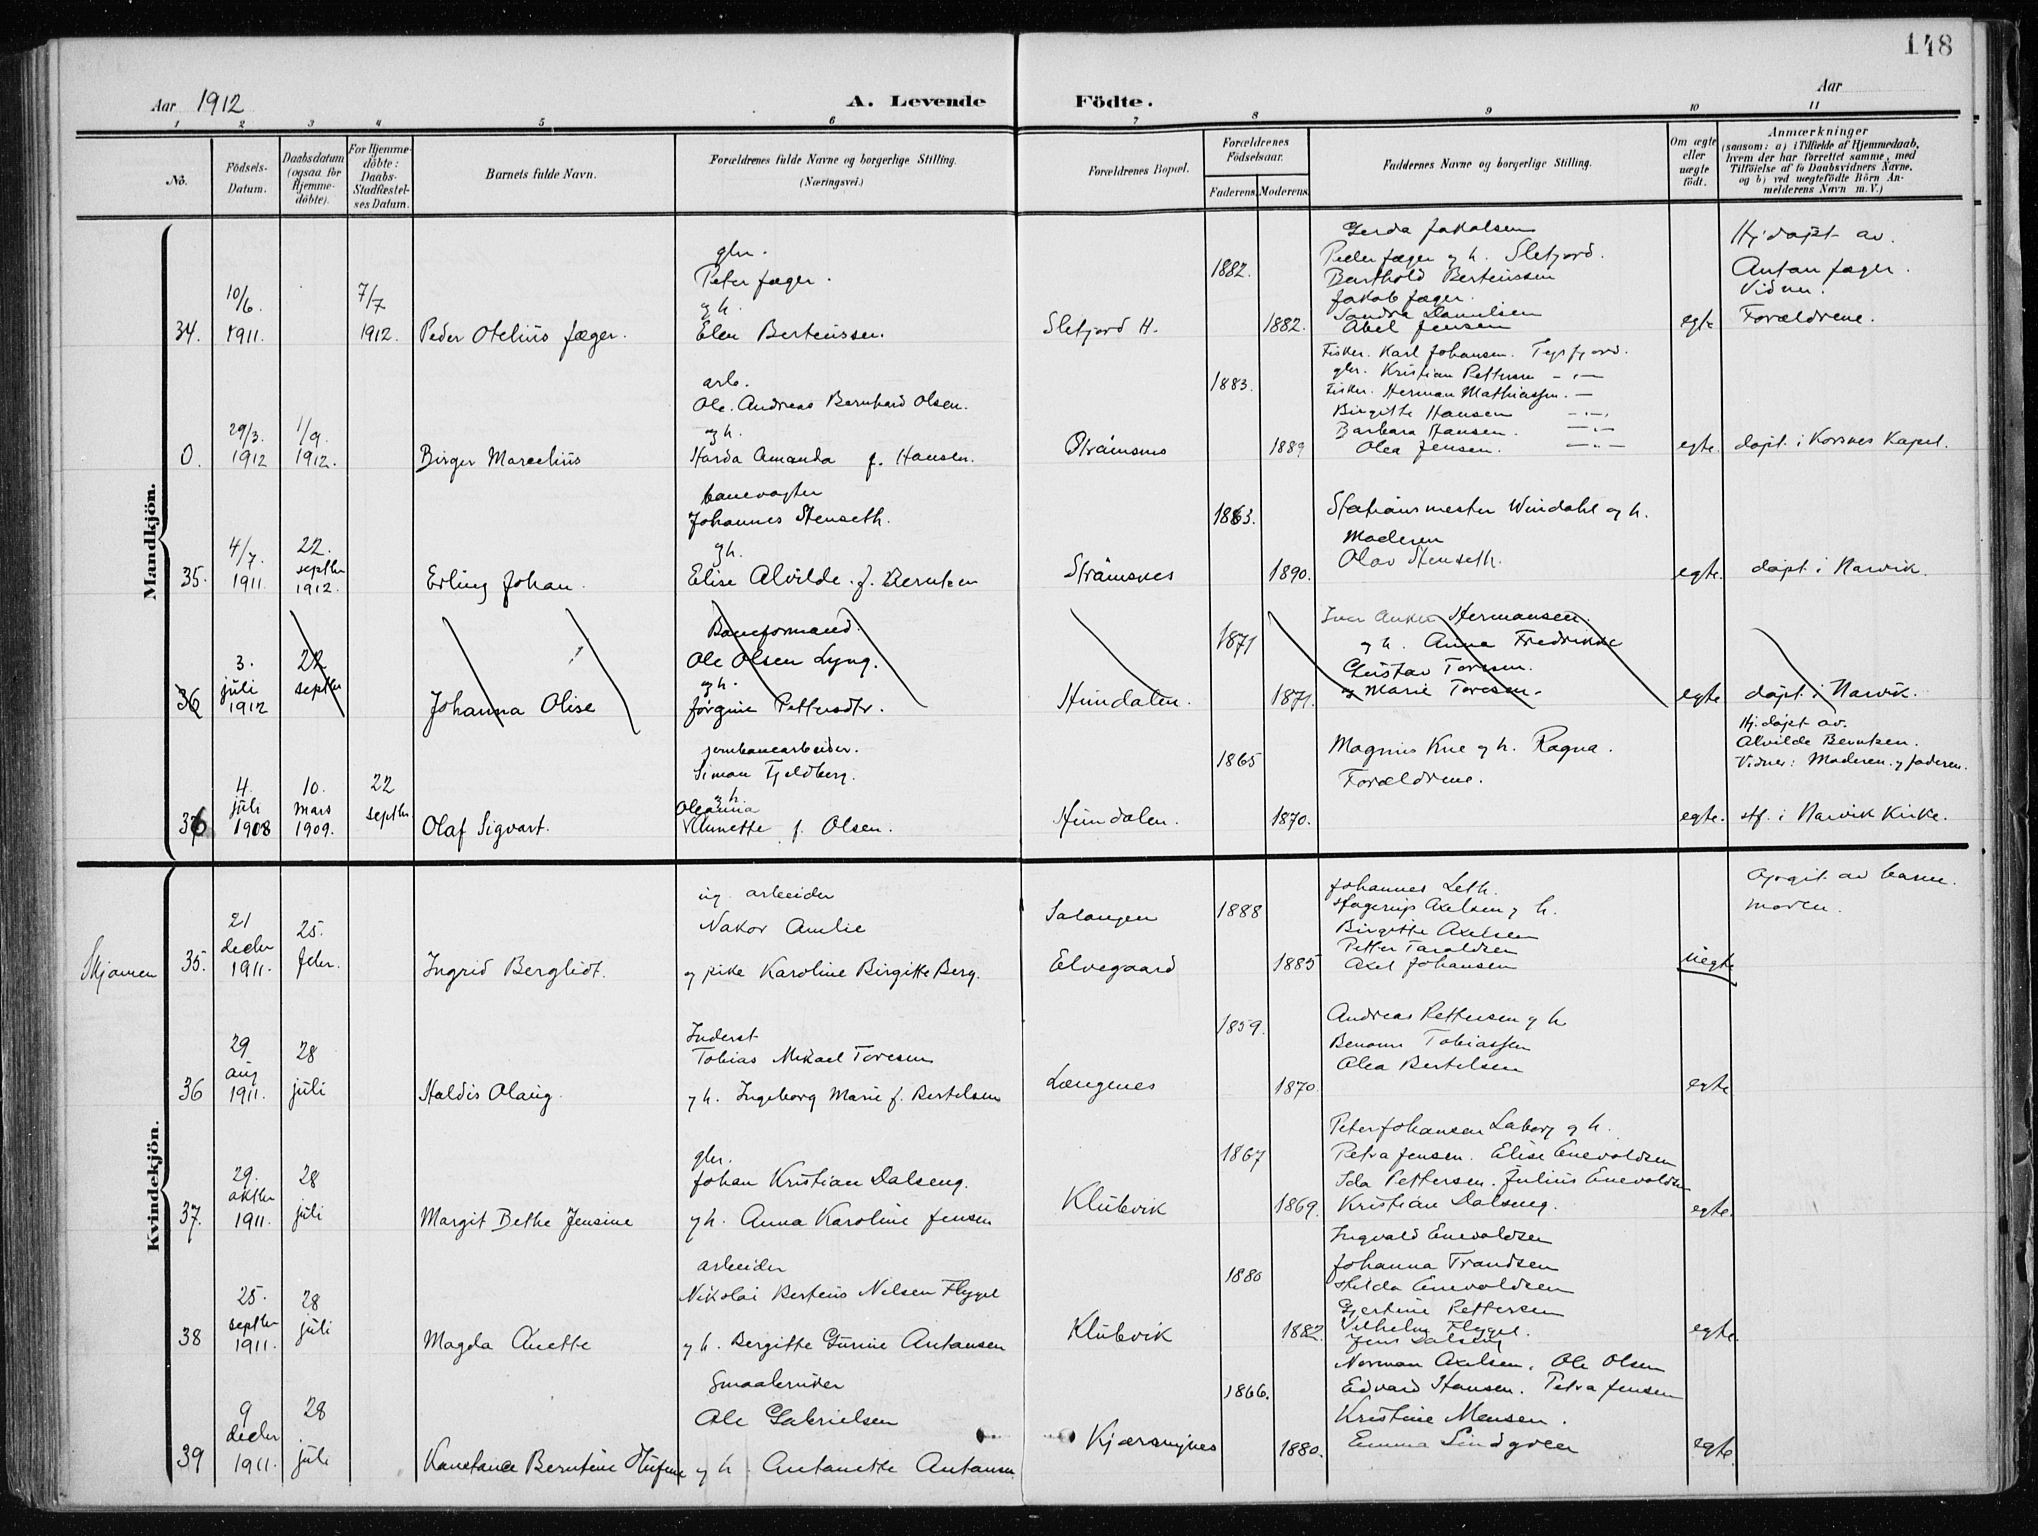 148
Aar 1912
A. Levende Födte.
Aar
1 2 3 4 5 6 7 8 9 10 11
No.
Födsels-Datum.
Daabsdatum (ogsaa for Hjemme-döbte).
For Hjemme-döbte: Daabs-Stadfæstel-ses Datum.
Barnets fulde Navn.
Forældrenes fulde Navne og borgerlige Stilling.
(Næringsvei.)
Forældrenes Bopæl.
Forældrenes Födselsaar.
Faderens. Moderens.
Faddernes Navne og borgerlige Stilling.
Om ægte eller uægte födt.
Anmærkninger
(saasom: a) i Tilfælde af Hjemmedaab, hvem der har forrettet samme, med Tilföielse af to Daabsvidners Navne, og b) ved uægtefödte Börn Anmelderens Navn m. V.)
Mandkjön.
34.
10/6.
1911.
7/7
1912.
Peder Otelius Jæger.
gbr.
Peter Jæger.
og h.
Elen Berteussen.
Sletjord H.
1882.
1882.
Gerda Jakobsen
Peder Jæger og h. Sletjord.
Barthold Berteussen
Jakob Jæger.
Sandra Danielsen
Abel Jensen
egte
Hj.døpt av.
Anton Jæger.
Vidner:
Forældrene.
0.
29/3.
1912
1/9.
1912.
Birger Marcelius
arb.
Ole Andreas Bernhard Olsen.
og h.
Harda Amanda f. Hansen.
Strømsnes
1883.
1889
Fisker. Karl Johansen. Tysfjord.
gbr. Kristian Pettersen — " —
Fisker. Herman Mathiassen. —
Birgitte Hansen — " —
Barbara Hansen. — " —
Olea Jensen. — " —
egte.
døpt. i Korsnes Kapel.
35.
4/7.
1911.
22.
septbr
1912.
Erling Johan.
banevogter
Johannes Stenseth.
og h.
Elise Alvilde. f. Berntsen
Strømsnes
1863.
1890.
Stationsmester Windahl og h.
Moderen
Olav Stenseth.
egte.
døpt i Narvik.
36
3.
juli
1912
22
septbr
Johanna Olise
Baneformand.
Ole Olsen Lyng.
og h.
Jørgine Pettersdtr.
Hundalen.
1871
1871.
Iver Anker Hermansen.
og h. Anna Fredrikke
Gustav Toresen.
og Marie Toresen.
egte
døpt i Narvik.
36
4.
juli
1908
10.
mars
1909.
22
septbr
Olaf Sigvart.
jernbanearbeider.
Simon Fjeldberg.
og h.
Oleanna
Annette f. Olsen.
Hundalen.
1865
1870.
Magnus Kne og h. Ragna.
Forældrene.
egte.
Hj.døpt av.
Alvilde Berntsen.
Vidner: Moderen og faderen.
stf. i Narvik Kirke.
Kvindekjön.
Skjomen
35.
21
decbr
1911.
25.
febr.
Ingrid Bergliot.
ug. arbeider
Nakor Amlie
og pike Karoline Birgitte Berg.
Salangen
Elvegaard
1888
1885
Johannes Leth.
Hagerup Axelsen og h.
Birgitte Axelsen
Petter Taraldsen
Axel Johansen
uegte
Opgit av barne
moren.
36
29
aug
1911.
28
juli
Haldis Olaug.
Inderst
Tobias Mikael Toresen
og h. Ingeborg Marie f. Bertelsen
Længenes
1859.
1870.
Andreas Pettersen og h
Benoni Tobiassen
Alea Bertelsen
egte
37.
29.
oktbr
1911.
28
juli
Margit Bethe Jensine
gbr.
Johan Kristian Dalseng.
og h. Anna Karoline Jensen
Klubvik
1867
1869.
Peter Johansen Laberg og h.
Petra Jensen. Elise Enevoldsen
Ida Pettersen. Julius Enevoldsen
Kristian Dalseng.
egte.
38
25.
septbr
1911.
28
juli
Magda Anette
arbeider
Nikolai Berteus Nilsen Flygel
og h. Bergitte Gurine Antonsen
Klubvik
1880
1882.
Ingvald Enevoldsen
Johanna Trandsen
Hilda Enevoldsen
Gjertine Pettersen
Vilhelm Flygel.
Jens Dalseng
egte.
39
9
decbr
1911.
28
juli
Konstance Berntine
Smaabruker
Ole Gabrielsen
og h. Antonette Antonsen
1866.
1880.
Norman Axelsen. Ole Olsen
Edvard Hansen. Petra Jensen
Kristine Monsen.
Emma Lindgreen
egte.